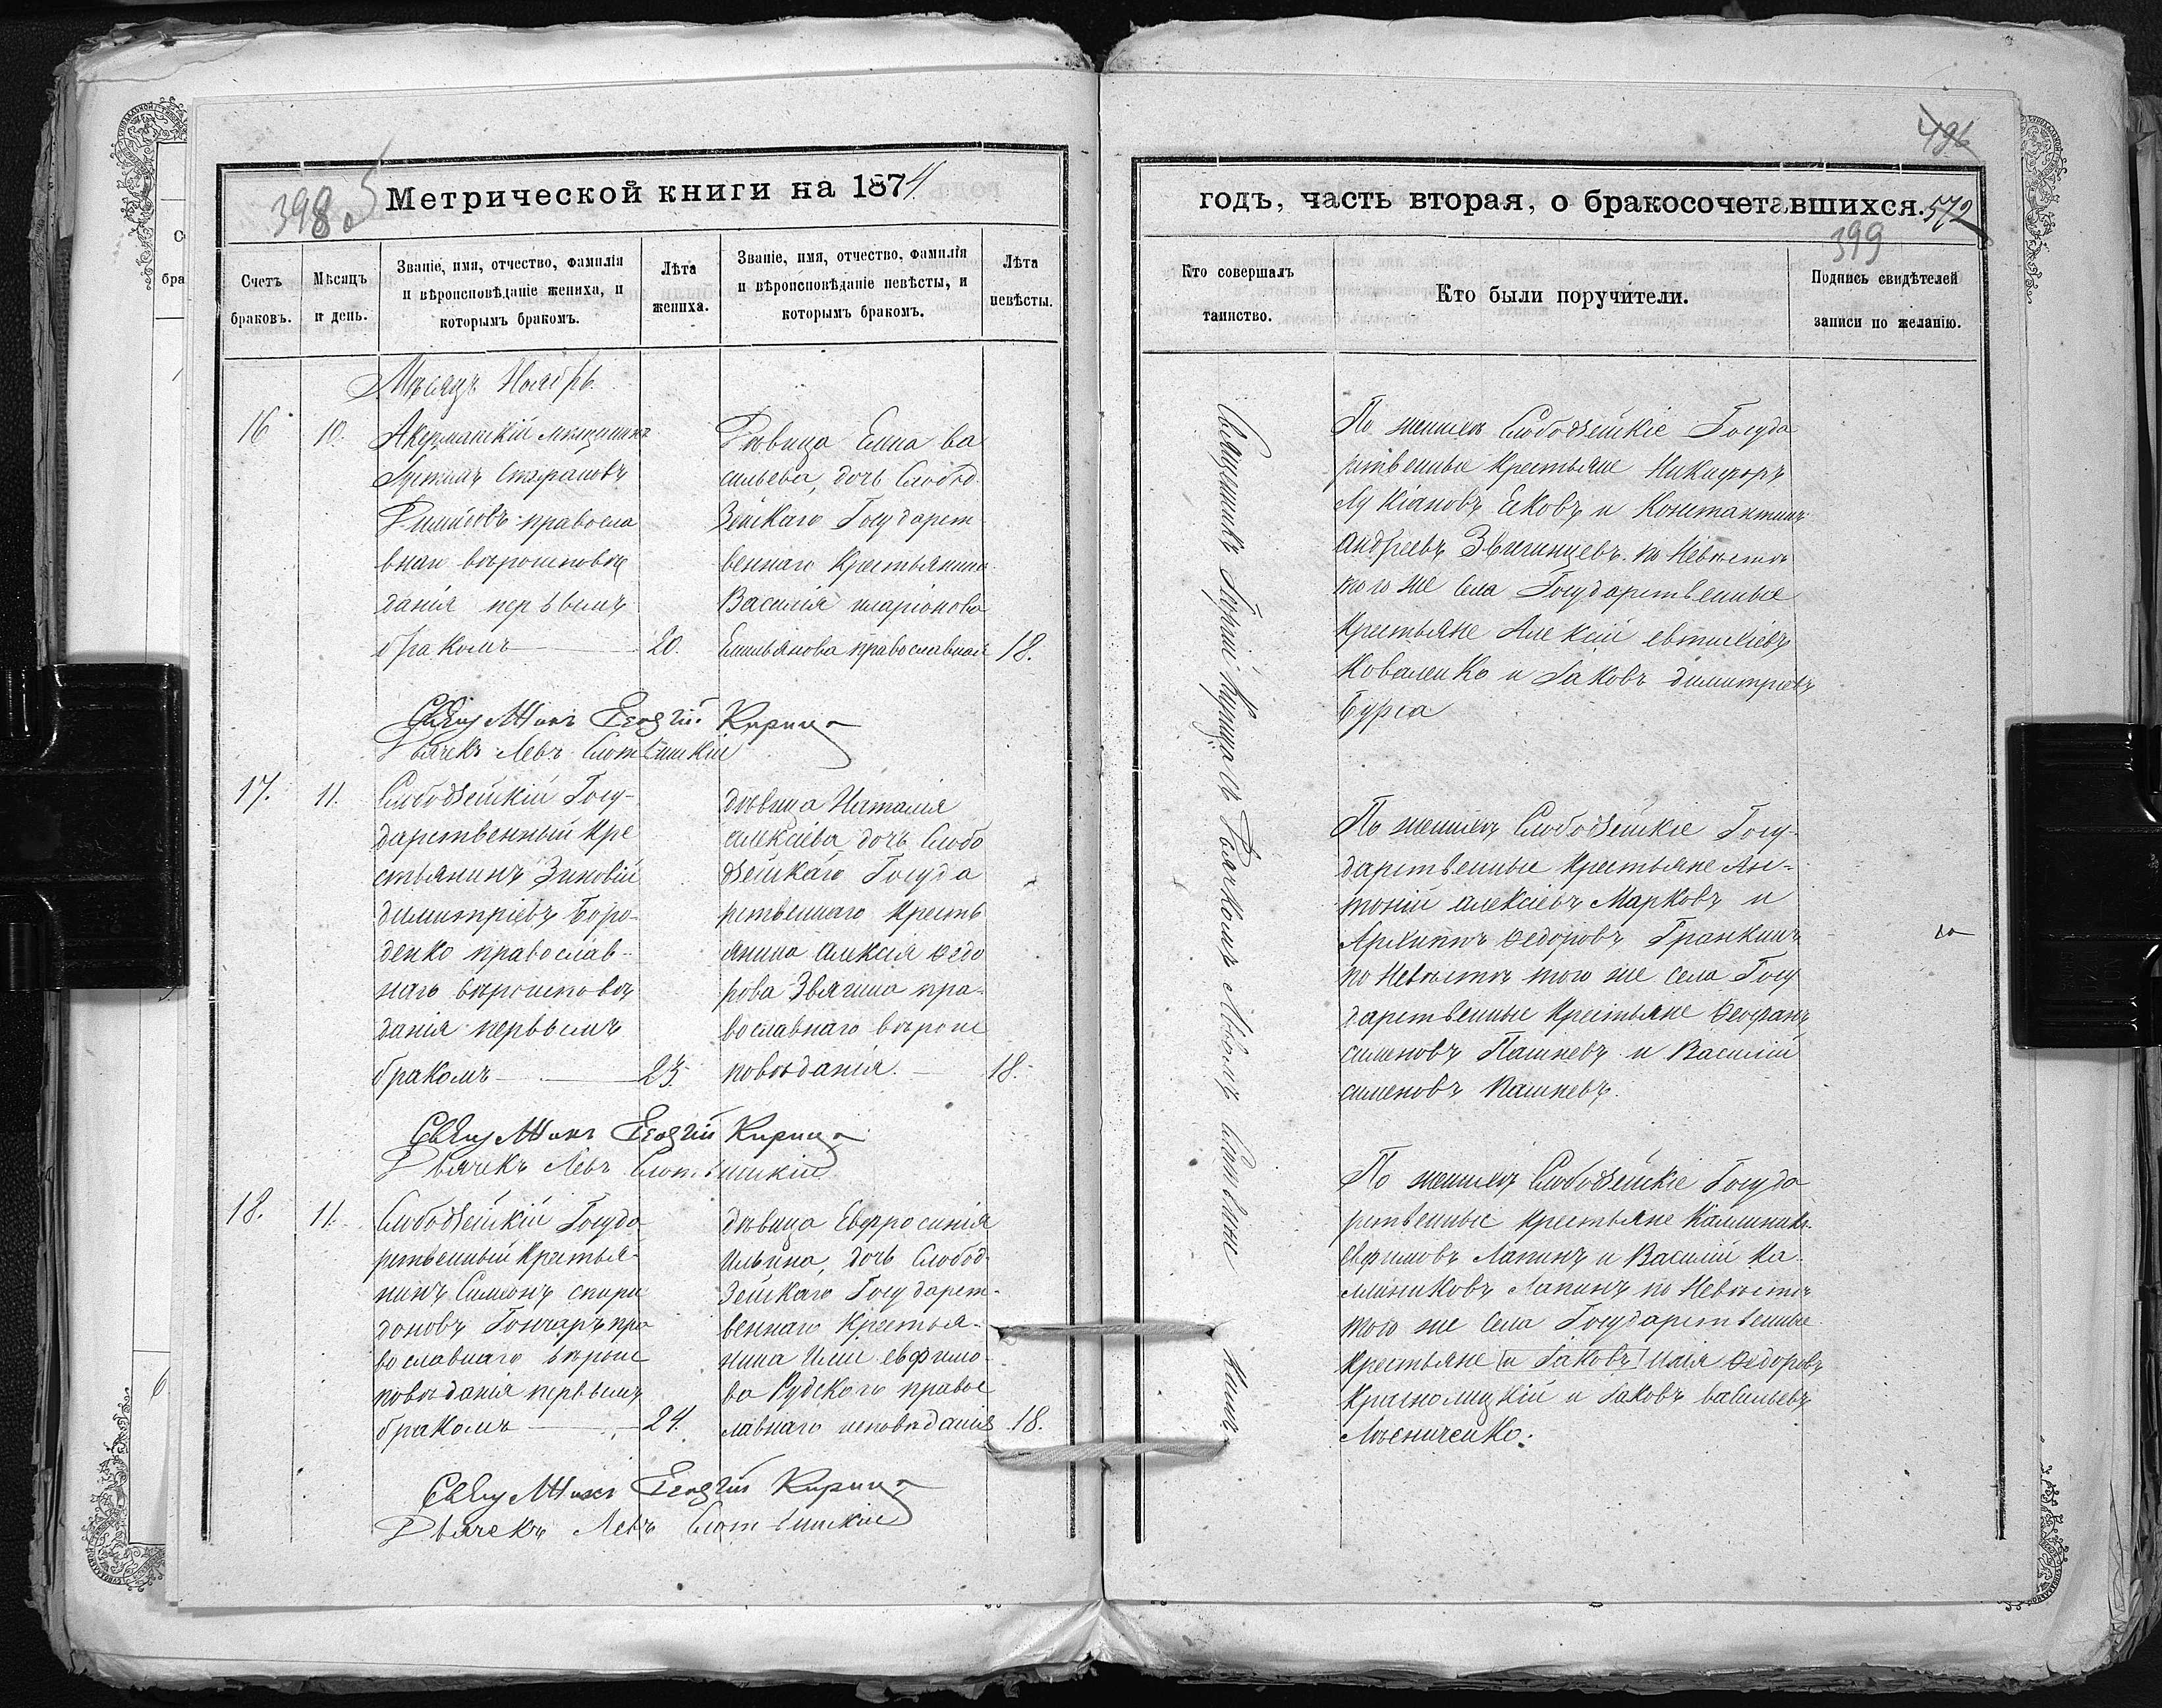 398 об
Метрической книги на 1874.
Счетъ браковъ.
Мѣсяцъ и день.
Званіе, имя, отчество, фамилія
и вѣроисповѣданіе жениха, и
которымъ бракомъ.
Лѣта жениха.
Званіе, имя, отчество, фамилія
и вѣроисповѣданіе невѣсты, и
которымъ бракомъ.
Лѣта невѣсты.
Мѣсяцъ Ноябрь.
16
10.
Акерманскій мѣщанинъ
Стефановъ
правосла
внаго вѣроисповѣ
данія первымъ
бракомъ
20.
Дѣвица Елена ва
сильева, дочь Слобод
зейскаго Государст
веннаго Крестьянина
Василія иларіонова
Емельянова православнаго
18.
Священникъ Георгій Кирица
Дьячекъ Левъ
17.
11.
Слободзейскій Госу-
дарственный Кре
стьянинъ Зиновій
димитріевъ Боро-
денко православ-
наго вѣроисповѣ
данія первымъ
бракомъ
23
дѣвица Наталія
алексіева дочь Слобо
дзейскаго Госуда
рственнаго Кресть
янина алексія ѳедо
рова Звягина пра-
вославнаго вѣроис
повѣданія.
18.
Священникъ Георгій Кирица
Дьячекъ Левъ
18.
11.
Слободзейскій Госуда
рственный Крестья-
нинъ Симеонъ спири
доновъ Гончаръ пра
вославнаго вѣроис
повѣданія первымъ
бракомъ
24.
дѣвица Евфросинія
Ильина, дочь Слобод-
зейскаго Государст-
веннаго Крестья-
нина Иліи евфимо-
ва Рудского правос
лавнаго исповѣданія
18.
Священникъ Георгій Кирица
Дьячекъ Левъ
496
годъ, часть вторая, о бракосочетавшихся.
572
399
Кто совершалъ таинство.
Кто были поручители.
Подпись свидѣтелей
записи по желанію.
Священникъ Георгій Кирица съ Дьячкомъ Львомъ
По женихѣ Слободзейскіе Госуда
рственные Крестьяне Никифоръ
Лукіановъ Ековъ и Константинъ
андреевъ Звягинцевъ по Невѣстѣ
того же села Государственные
Крестьяне Алексій евтихіевъ
Коваленко и Іаковъ димитріевъ
Бурса
По женихѣ Слободзейскіе Госу-
дарственные Крестьяне Ан-
тоній алексіевъ Марковъ и
Архиппъ ѳедоровъ Гранкинъ
по Невѣстѣ того же села Госу
дарственные Крестьяне Ѳеофанъ
сименовъ Пашневъ и Василій
сименовъ Пашневъ.
По женихѣ Слободзейскіе Госуда
рственные крестьяне Каллиникъ
евфимовъ Лапинъ и Василій Ка-
линиковъ Лапинъ по Невѣстѣ
того же села Государственные
Крестьяне и Іаковъ Илія Ѳедоровъ
и Іаковъ васильевъ
Лѣсниченко.